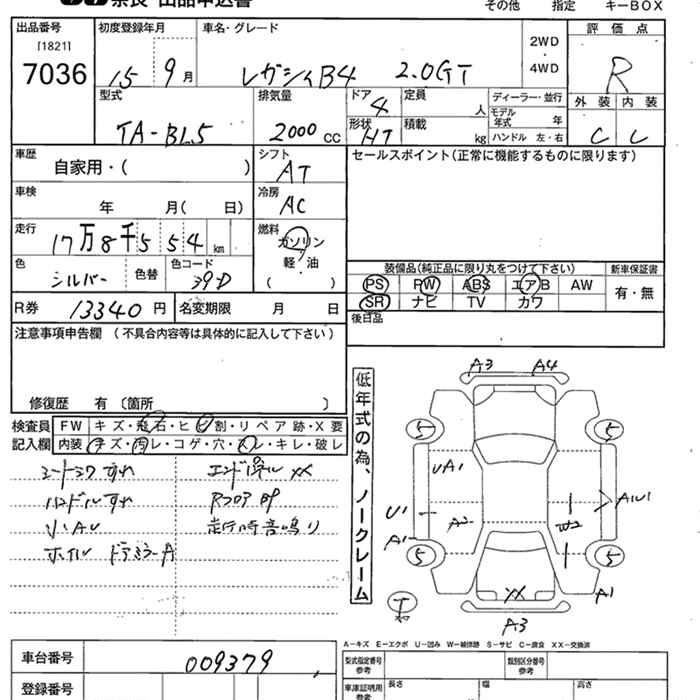 出品申込書
その他 指定 キーBOX
出品番号 初度登録年月 車名・グレード 評価点
[1821]
7036 15 9月 レガシィB4 2.0GT 2WD・4WD R
型式 排気量 ドア 定員 ディーラー・並行 外装 内装
TA-BL5 2000cc 4 人 モデル年式 年 C C
形状 積載 ハンドル 左・右
HT kg
車歴 シフト セールスポイント(正常に機能するものに限ります)
自家用・( ) AT
車検 冷房
年 月( 日) AC
走行 燃料
17万8千554km ガソリン
軽・油
( )
色 色替 色コード
シルバー 39D
装備品(純正品に限り丸をつけて下さい) 新車保証書
PS PW ABS エアB AW 有・無
SR ナビ TV カワ
R券 13340円 名変期限 月 日
後日品
注意事項申告欄 (不具合内容等は具体的に記入して下さい)
修復歴 有 〔箇所 〕
検査員 FW キズ・飛石・ヒビ割・リペア跡・X要
記入欄 内装 キズ・汚レ・コゲ・穴・スレ・キレ・破レ
シートシワすれ エンドパネルXX
ハンドルすれ RフロアBP
小AU 走行時音鳴り
ホイル ドアミラーA
低年式の為、ノークレーム
A3 A4
5 5
UA1
U1 A2 W2 A1U1
A1
5 5
XX A1
T A3
A-キズ E-エクボ U-凹み W-補修跡 S-サビ C-腐食 XX-交換済
車台番号 009379
型式指定番号 参考 類別区分番号 参考
登録番号 車庫証明用 参考 長さ 幅 高さ